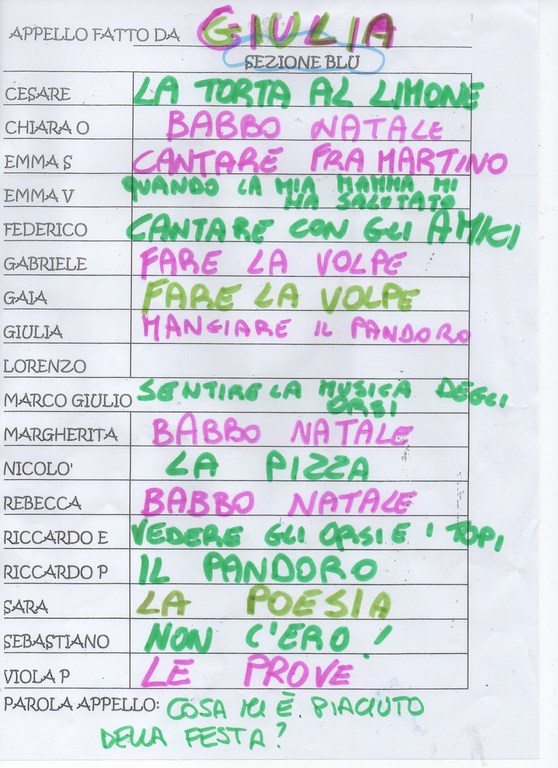 APPELLO FATTO DA GIULIA
SEZIONE BLU
CESARE LA TORTA AL LIMONE
CHIARA O BABBO NATALE
EMMA S CANTARE FRA MARTINO
EMMA V QUANDO LA MIA MAMMA MI
HA SALUTATO
FEDERICO CANTARE CON GLI AMICI
GABRIELE FARE LA VOLPE
GAIA FARE LA VOLPE
GIULIA MANGIARE IL PANDORO
LORENZO
MARCO GIULIO SENTIRE LA MUSICA DEGLI
ORSI
MARGHERITA BABBO NATALE
NICOLO' LA PIZZA
REBECCA BABBO NATALE
RICCARDO E VEDERE GLI ORSI E I TOPI
RICCARDO P IL PANDORO
SARA LA POESIA
SEBASTIANO NON C'ERO!
VIOLA P LE PROVE
PAROLA APPELLO: COSA MI È PIACIUTO
DELLA FESTA?